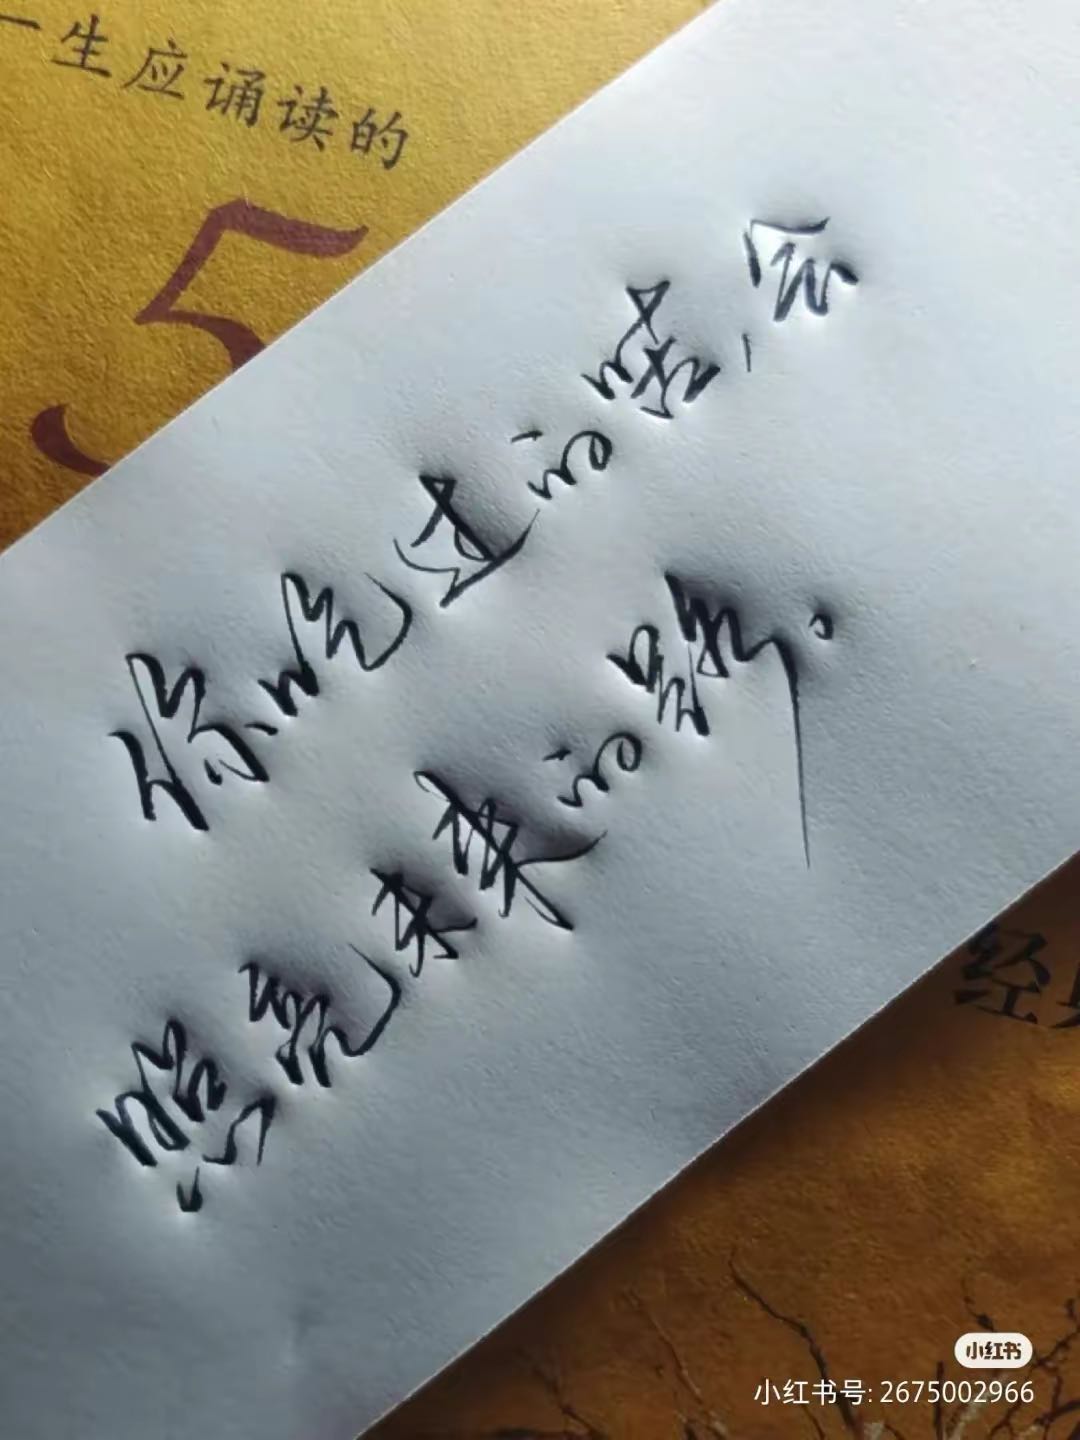 一生应诵读的
5
你吃过的苦,会
照亮未来的路。
经典
小红书
小红书号: 2675002966